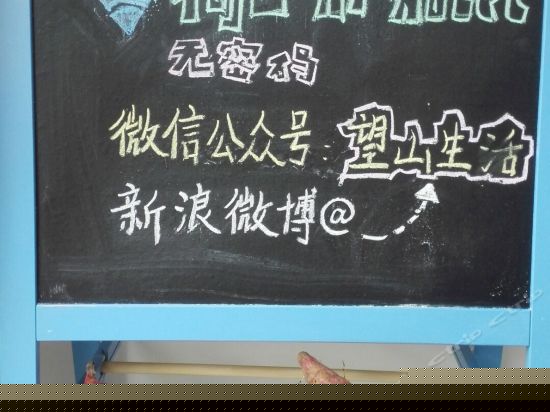 无密码
微信公众号:望山生活
新浪微博@